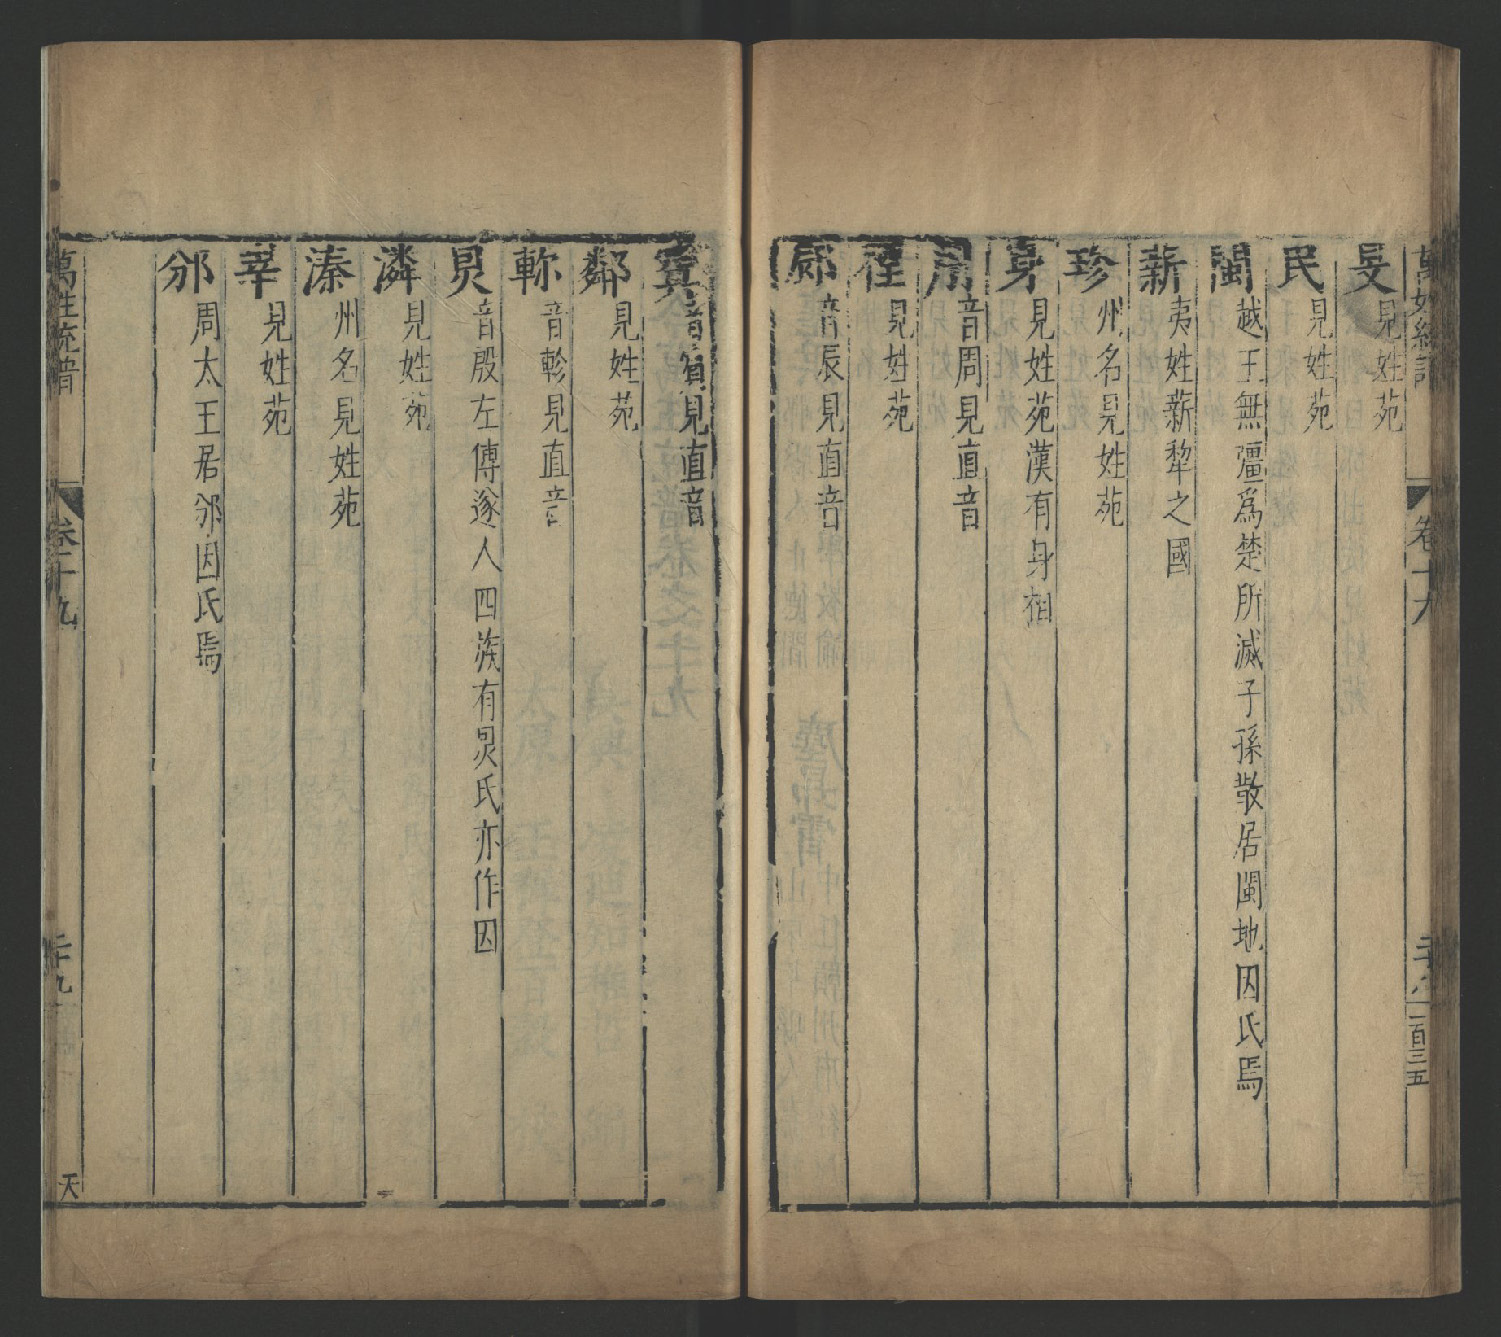 萬姓統譜
卷十九
一百三五
旻 見姓苑
民 見姓苑
閩 越王無彊爲楚所滅子孫散居閩地因氏焉
薪 夷姓薪犂之國
珍 州名見姓苑
身 見姓苑漢有身相
音周見直音
見姓苑
音辰見直音
音賓見直音
鄰 見姓苑
音軫見直音
音殷左傳遂人四族有炅氏亦作因
潾 見姓苑
溱 州名見姓苑
莘 見姓苑
邠 周太王居邠因氏焉
萬姓統譜
卷十九
二十九
天